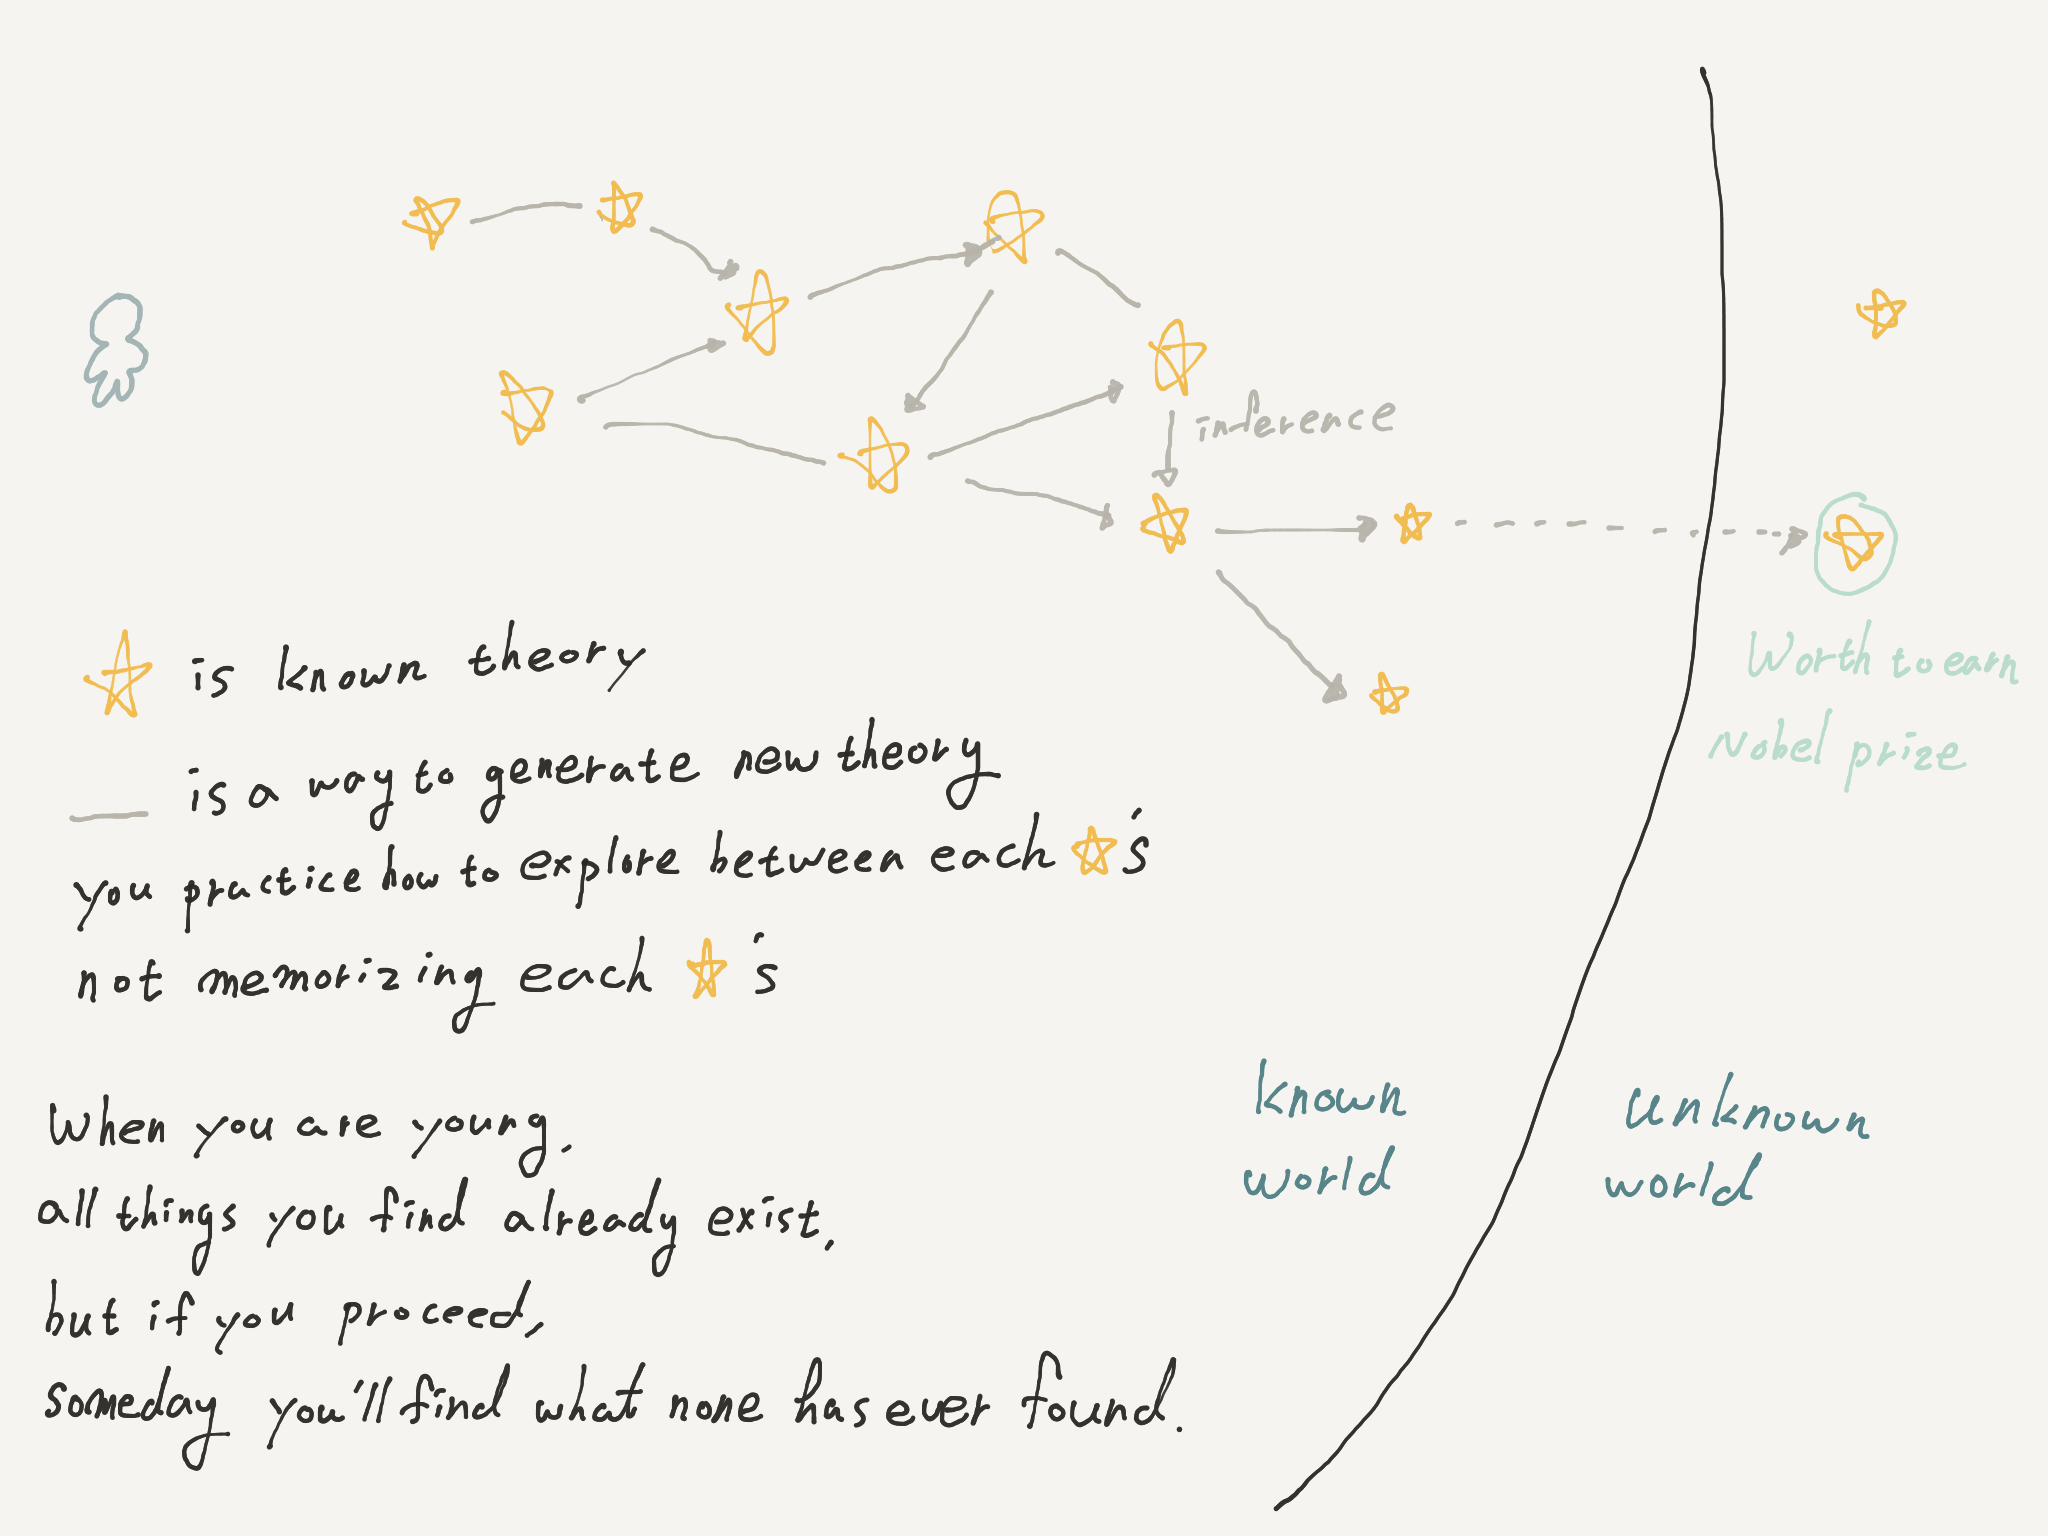 inference
Worth to earn
Nobel prize
☆ is known theory
— is a way to generate new theory
you practice how to explore between each ☆'s
not memorizing each ☆'s
known
world
unknown
world
When you are young,
all things you find already exist,
but if you proceed,
someday you'll find what none has ever found.